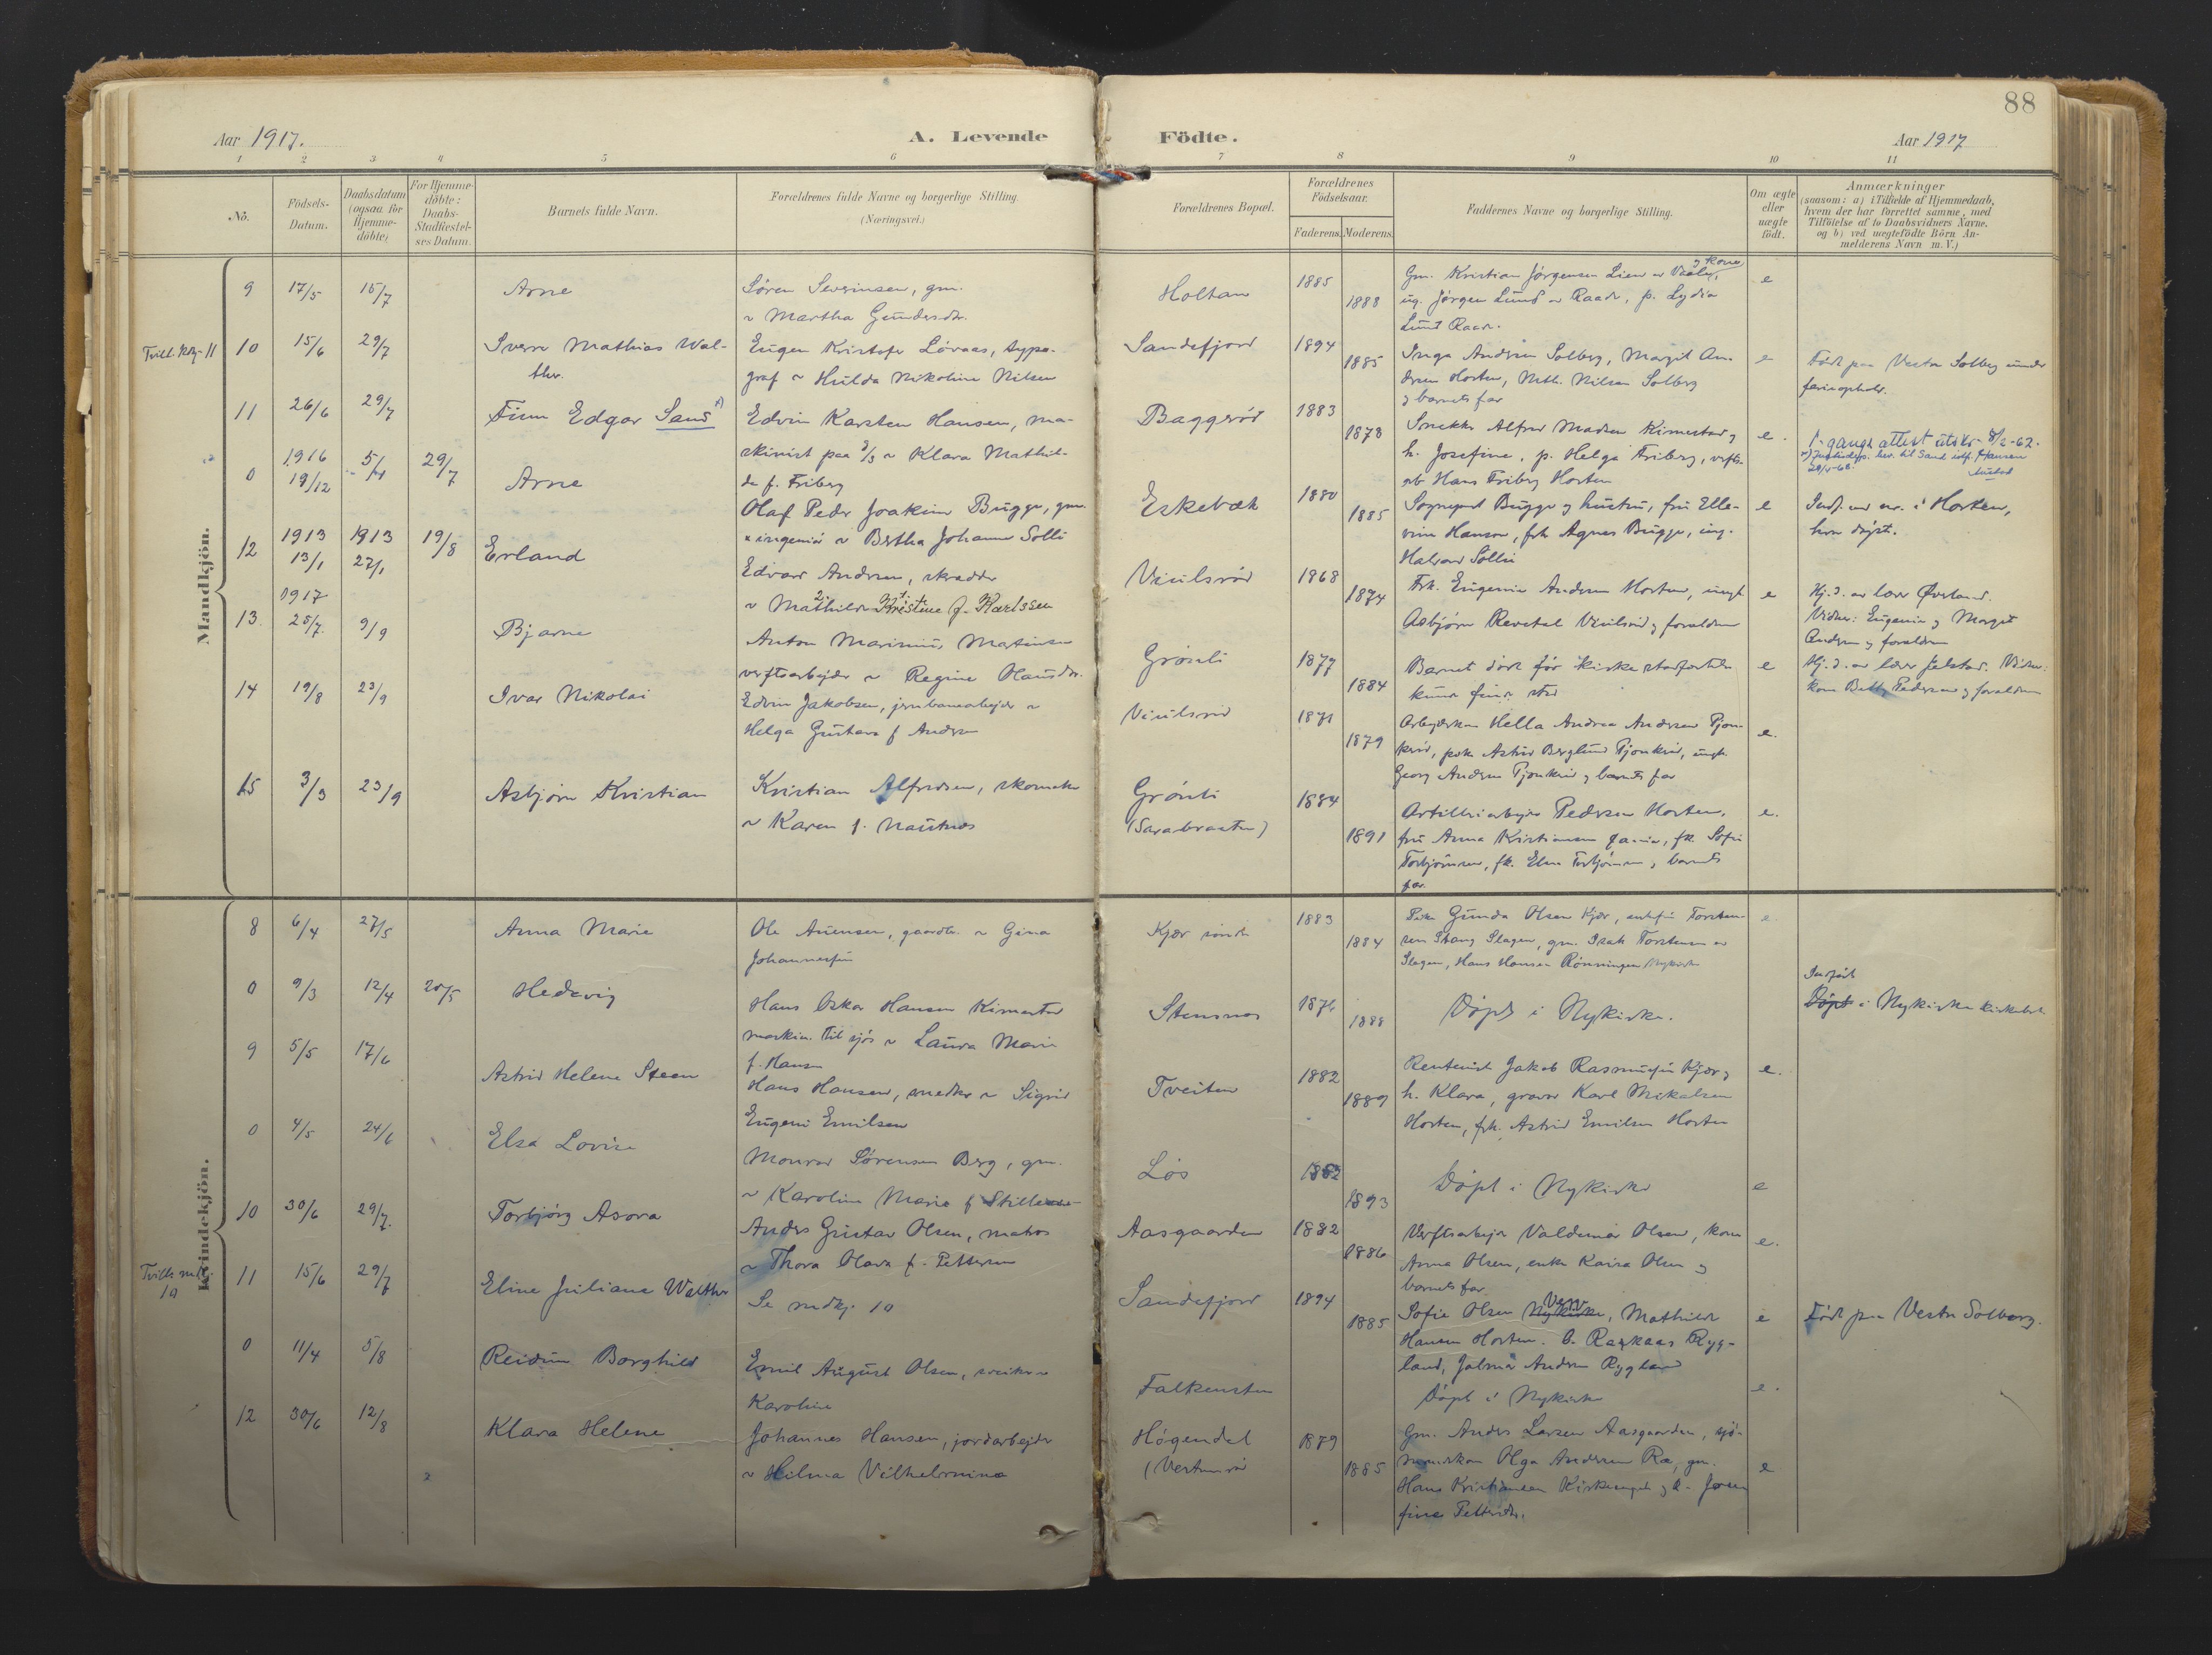 88
Aar 1917.
A. Levende Födte.
Aar 1917
1 2 3 4 5 6 7 8 9 10 11
No.
Födsels-Datum.
Daabsdatum (ogsaa for Hjemme-döbte)
For Hjemme-döbte: Daabs-Stadfæstel-ses Datum.
Barnets fulde Navn.
Forældrenes fulde Navne og borgerlige Stilling.
(Næringsvei.)
Forældrenes Bopæl.
Forældrenes Födselsaar.
Faderens. Moderens.
Faddernes Navne og borgerlige Stilling.
Om ægte eller uægte födt.
Anmærkninger
(saasom: a) i Tilfælde af Hjemmedaab,
hvem der har forrettet samme, med
Tilföielse af to Daabsvidners Navne,
og b) ved uægtefödte Börn An-
melderens Navn m. V.)
Mandkjön.
9 17/5 15/7 Arne
Søren Severinsen, gm.
~ Martha Gundersdtr.
Holtan 1885 1888
Gm. Kristian Jørgensen Lien
ug. Jørgen Lund ~ Raadn, p. Lydia
Lund Raadn.
e
Tvill. 11
10 15/6 29/7 Sverre Mathias Wal-
ther
Eugen Kristofer Løvaas, typo-
graf ~ Hulda Nikoline Nilsen
Sandefjord 1894 1885
Inga Andersen Solberg, Margit An-
dersen Horten, Mth. Nilsen Solberg
og barnets far
e
Født paa Vestre Solberg under
ferieophold.
11 26/6 29/7 Finn Edgar Sand x)
Edvin Karsten Hansen, ma-
skinist paa ~ Klara Mathil-
de f. Friberg
Baggerød 1883 1878
Snekker Alfred Madsen Kimestad og
h. Josefine, p. Helga Friberg, verfts-
arb Hans Friberg Horten
e.
1. gangs attest utskr. 8/2-62.
0 1916 19/12 5/4 29/7 Arne
Olaf Peder Joakim Bugge, gm.
x ingeniør ~ Bertha Johanne Solli
Eskebæk 1880 1885
Sogneprest Bugge og hustru, fru Elle-
vine Hansen, frk Agnes Bugge, ung.
Halvard Sollie
e
Indf. i Horten,
hvor døpt.
12 1913 13/1 1913 27/1 19/8 Erland
Edvard Andersen, skrædder
~ Mathilde Kristine f. Karlssen
Viulsrød 1868 1874
Frk. Eugenie Andersen Horten, ungk
Asbjørn Revetal Viulsrød og forældrene
e
Hj.d. av lærer Øverland.
Vidner: Eugenie og Margit
Andersen og forældrene
1917
13 25/7 9/9 Bjarne
Anton Marinius Martinsen
verftsarbejder ~ Regine Hansdtr.
Grønli 1877 1884
Barnet døde før kirkestadfæstelse
kunde finde sted
e
Hj.d. av lærer Jelstad. Vidner:
kone Betty Pedersen og forældrene
14 19/8 23/9 Ivar Nikolai
Edvin Jakobsen, jernbanearbejder ~
Helga Gustava f Andersen
Viulsrød 1871 1879
Arbejderkone Hella Andrea Andersen Tjon-
kerød, pike Astrid Berglund Tjonkerød, ungk.
Georg Andersen Tjonkerød og barnets far
e.
15 3/3 23/9 Asbjørn Kristian
Kristian Alfredsen, skomaker
~ Karen f. Nautnes
Grønli
(Sarabraaten)
1884 1891
Artilleriarbejder Pedersen Horten,
fru Anna Kristiansen , fk. Sofie
Torbjørnsen, fk. Elna Torbjørnsen og barnets
far.
e.
Kvindekjön.
8 6/4 27/5 Anna Marie
Ole Auensen, gaardbr. ~ Gina
Johannesfin
Kjær søndre 1883 1884
Pike Gunda Olsen Kjær, Torsten-
sen Stang Slagen, gm. Isak Torstensen
Slagen, Hans Hansen Rønningen Nykirke
e
0 9/3 12/4 20/5 Hedevig
Hans Oskar Hansen Kimestad
maskin. til sjøs ~ Laura Marie
f. Hansen
Stensnes 1876 1888
Døpt i Nykirke.
Indført
Døpt i Nykirke kirkebok
9 5/5 17/6 Astrid Helene Steen
Hans Hansen, snedker ~ Sigrid
Eugenie Emilsen
Tveiten 1882 1889
Rentenist Jakob Rasmussen Kjær og
h. Klara, gravør Karl Mikalsen
Horten, frk. Astrid Emilsen Horten
e.
0 4/5 24/6 Elsa Lovise
Monrad Sørensen Berg, gm.
~ Karoline Marie f
Løs 1882 1893
Døpt i Nykirke
e
10 30/6 29/7. Torbjørg Asora
Anders Gustav Olsen, matros
~ Thora Olava f. Pettersen
Aasgaarden 1882 1886
Verftsarbejder Valdemar Olsen, kone
Anna Olsen, enke Kaisa Olsen og
barnets far
e.
Tvill. m.kj. 10
11 15/6 29/7 Eline Juliane Walther
Se mdkj. 10
Sandefjord 1894 1885
Sofie Olsen Nykirke, Mathilde
Hansen Horten. O. Raskaas Ryg-
land, Jalmar Andersen Rygland
e
Født paa Vestre Solberg.
0 11/4 5/8 Reidun Borghild
Emil August Olsen, ~
Karoline
Falkensten
Døpt i Nykirke
e.
12 30/6 12/8 Klara Helene
Johannes Hansen, jordarbejder
~ Hilma Vilhelmine
Høgendal
(Vestmrød
1879 1885
Gm. Anders Larsen Aasgaarden, sjø-
mandskone Olga Andersen Ra, gm.
Hans Kristiansen Kirkeenget og h. Jose-
fine Pettersdtr.
e